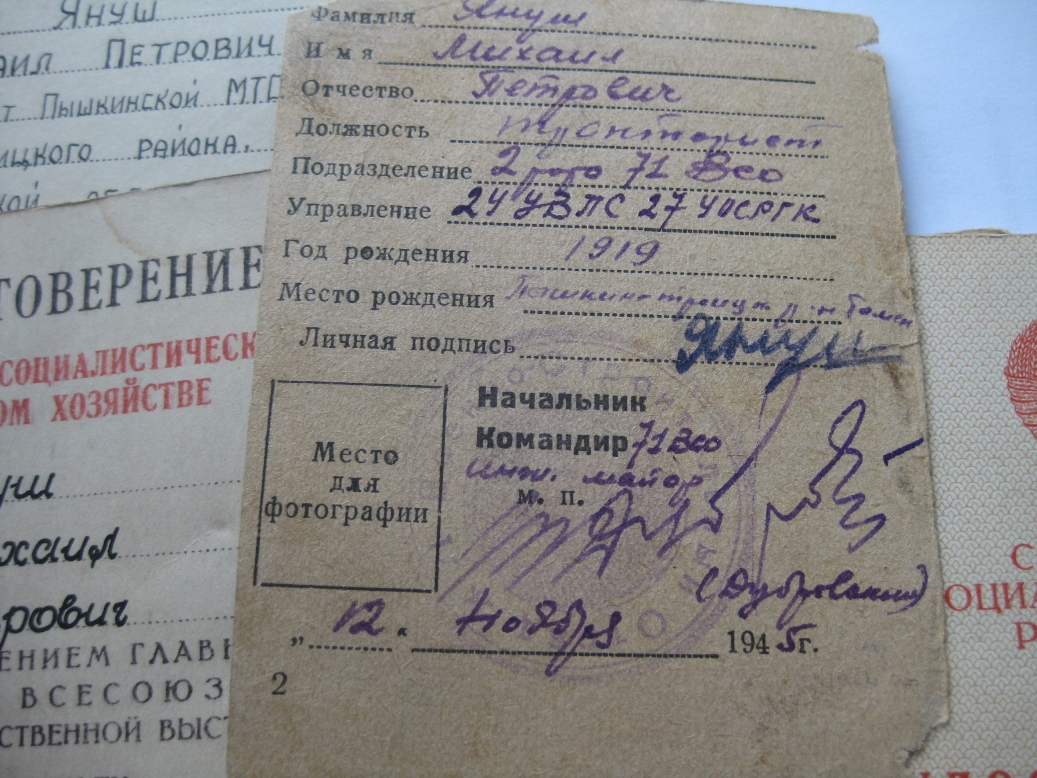 ЯНУШ
АИЛ ПЕТРОВИЧ
Т ПЫШКИНСКОЙ МТС
ИЦКОГО РАЙОНА.
КОЙ
ТОВЕРЕНИЕ
СОЦИАЛИСТИЧЕСК
ОМ ХОЗЯЙСТВЕ
уш
хаил
рович
ЕНИЕМ ГЛАВ
ВСЕСОЮЗ
СТВЕННОЙ ВЫСТ
Фамилия Януш
Имя Михаил
Отчество Петрович
Должность тракторист
Подразделение 2 рота 71 Всо
Управление 24 УВПС 27 УОСРГК
Год рождения 1919
Место рождения р-н Томск
Личная подпись Януш
Начальник
Командир 71 Всо
инж. майор
м. п.
Место
для
фотографии
(Дубровский)
„ 12 “ Ноября 1945 г.
2
С
ОЦИА
Р